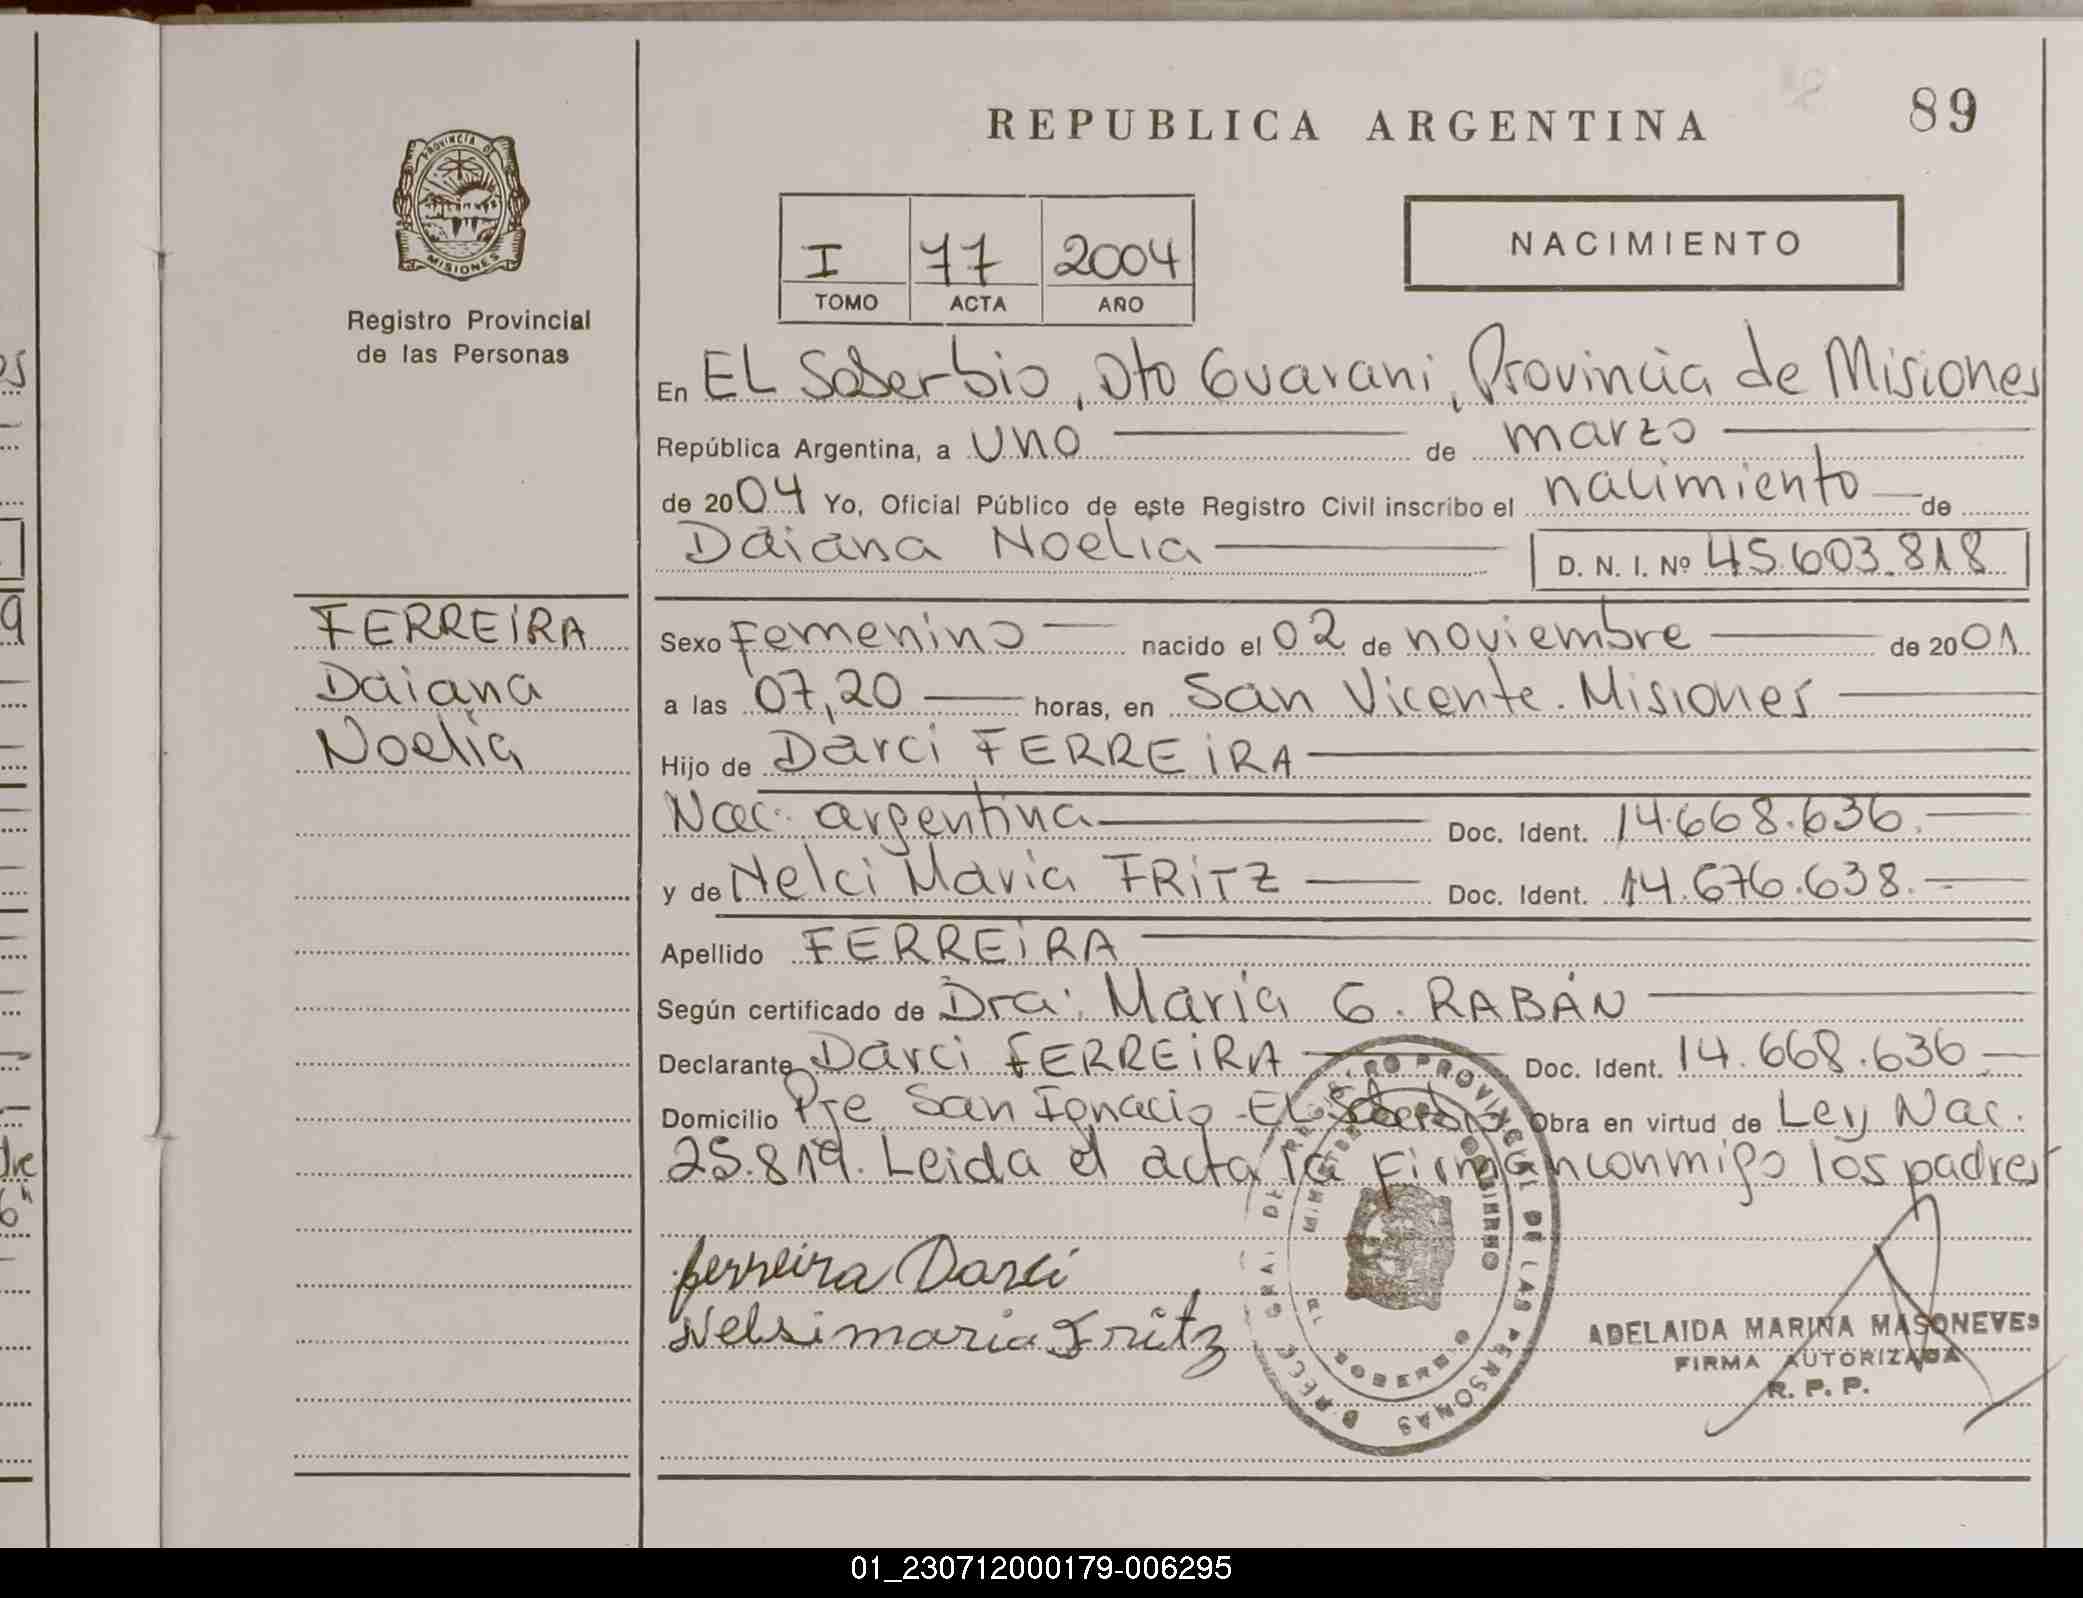 REPUBLICA ARGENTINA
89
PROVINCIA DE
MISIONES
Registro Provincial
de las Personas
I 77 2004
TOMO ACTA AÑO
NACIMIENTO
En EL Soberbio, Dto Guarani, Provincia de Misiones
República Argentina, a uno de marzo
de 2004 Yo, Oficial Público de este Registro Civil inscribo el nacimiento de
Daiana Noelia D. N. I. Nº 45.603.818
FERREIRA
Daiana
Noelia
Sexo Femenino nacido el 02 de noviembre de 2001
a las 07,20 horas, en San Vicente. Misiones
Hijo de Darci FERREIRA
Nac. argentina Doc. Ident. 14.668.636.
y de Nelci Maria FRITZ Doc. Ident. 14.676.638.
Apellido FERREIRA
Según certificado de Dra: Maria G. RABÁN
Declarante Darci FERREIRA Doc. Ident. 14.668.636
Domicilio Pje San Ignacio - EL Soberbio Obra en virtud de Ley Nac.
25.819. Leida el acta la Firman conmigo los padres
ferreira Darci
Nelsi maria Fritz
ADELAIDA MARINA MASONEVES
FIRMA AUTORIZADA
R. P. P.
DIRECC. GRAL. DE REGISTRO PROVINCIAL DE LAS PERSONAS
GOBIERNO
EL SOBERBIO
01_230712000179-006295